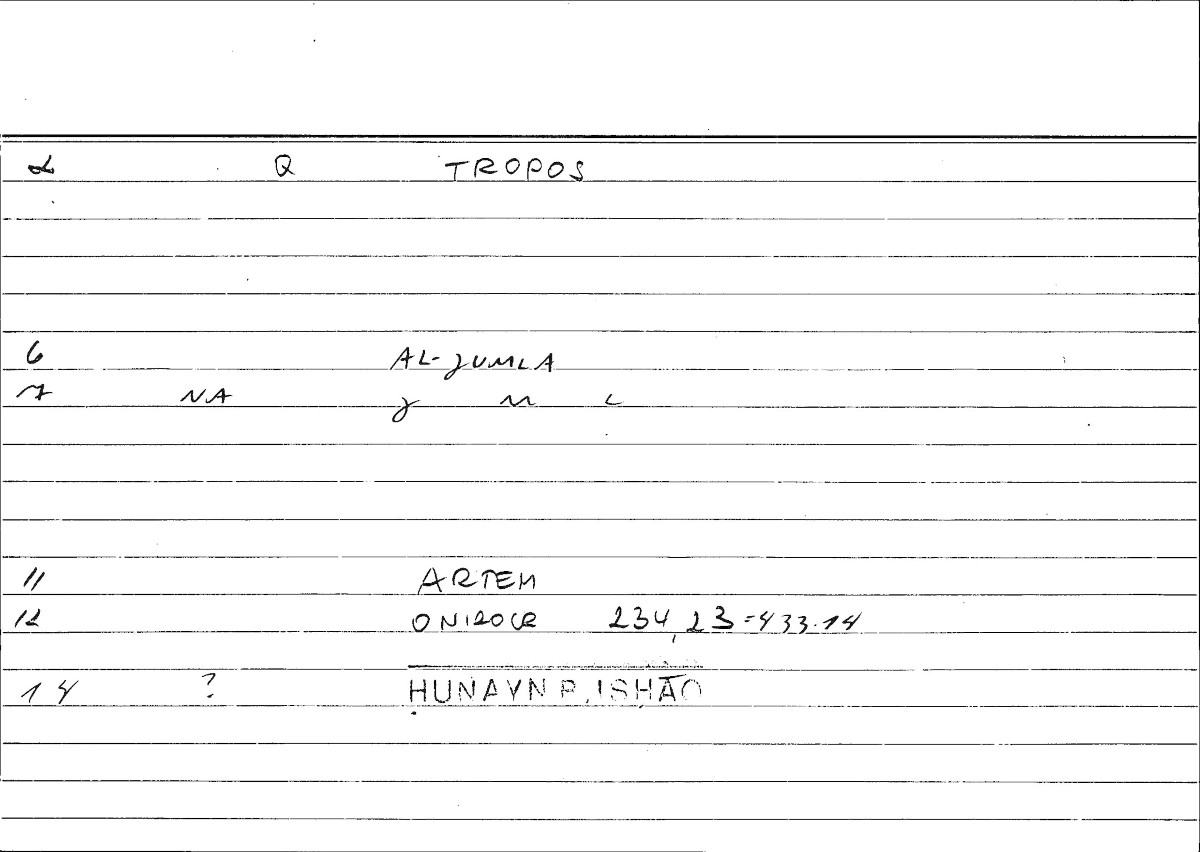 α Q TROPOS
6 AL-JUMLA
7 NA J M L
11 ARTEM
12 ONIROCR 234,23=433.14
14 ? ḤUNAYN B. ISḤĀQ